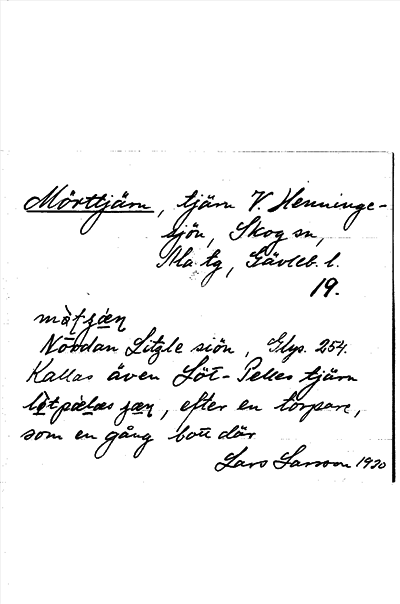 Mörttjärn, tjärn V Henninge-
sjön, Skog sn,
Ala tg, Gävleb. l.
19.
Nordan Litzle siön, Glys. 254.
Kallas även Löt-Pelles tjärn
, efter en torpare,
som en gång bott där
Lars Larsson 1920